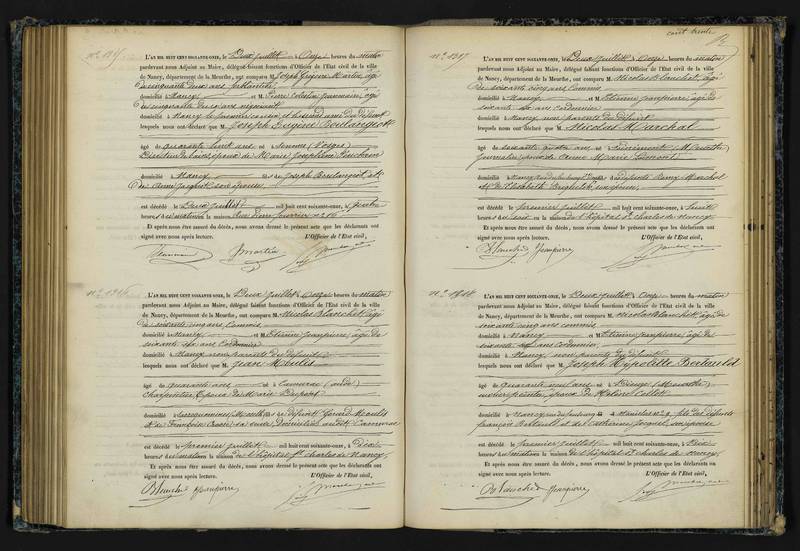 cent trente
L'AN MIL HUIT CENT SOIXANTE-ONZE, le Deux juillet à Onze heures du matin
pardevant nous Adjoint au Maire, délégué faisant fonctions d'Officier de l'État civil de la ville
de Nancy, département de la Meurthe, ont comparu M. Joseph Grégoire Martin, âgé
De cinquante deux ans
domicilié à Nancy et M. Pierre Celestin, âgé
De cinquante deux ans négociant
domicilié à Nancy le premier cousin et le second ami du défunt
lesquels nous ont déclaré que M. Joseph Eugène Boulangeot
âgé de quarante huit ans né à Senones (Vosges)
époux de Marie Josephine
domicilié à Nancy fils de Joseph Boulangeot et
De Anne son épouse
est décédé le Deux juillet mil huit cent soixante-onze, à quatre
heures du matin en la maison Rue
Et après nous être assuré du décès, nous avons dressé le présent acte que les déclarants ont
signé avec nous après lecture. L'Officier de l'État civil,
Martin
L'AN MIL HUIT CENT SOIXANTE-ONZE, le Deux juillet à Onze heures du matin
pardevant nous Adjoint au Maire, délégué faisant fonctions d'Officier de l'État civil de la ville
de Nancy, département de la Meurthe, ont comparu M. Nicolas Blanchet, âgé
De soixante cinq ans Commis
domicilié à Nancy et M. Etienne Jeanpierre, âgé de
soixante six ans Cordonnier
domicilié à Nancy non parents du défunt
lesquels nous ont déclaré que M. Jean
âgé de quarante ans né à Camurac (aude)
Charpentier, Epoux de Marie
domicilié à fils de défunt Gérard
et de Françoise sa veuve domiciliée audit Camurac
est décédé le premier juillet mil huit cent soixante-onze, à Dix
heures du matin en la maison de l'hôpital St. Charles de Nancy
Et après nous être assuré du décès, nous avons dressé le présent acte que les déclarants ont
signé avec nous après lecture. L'Officier de l'État civil,
Blanché Jeanpierre
n° 1317
L'AN MIL HUIT CENT SOIXANTE-ONZE, le Deux juillet à Onze heures du matin
pardevant nous Adjoint au Maire, délégué faisant fonctions d'Officier de l'État civil de la ville
de Nancy, département de la Meurthe, ont comparu M. Nicolas Blanchet, âgé
De soixante cinq ans Commis
domicilié à Nancy et M. Etienne Jeanpierre, âgé de
soixante six ans cordonnier
domicilié à Nancy non parents du défunt
lesquels nous ont déclaré que M. Nicolas Marchal
âgé de soixante quatre ans né à (Meurthe)
Journalier époux de Anne Marie
domicilié à Nancy fils de défunts Remy Marchal
et de Elisabeth son épouse
est décédé le premier juillet mil huit cent soixante-onze, à huit
heures du soir en la maison de l'hôpital St. Charles de Nancy
Et après nous être assuré du décès, nous avons dressé le présent acte que les déclarants ont
signé avec nous après lecture. L'Officier de l'État civil,
Blanché Jeanpierre
n° 1318
L'AN MIL HUIT CENT SOIXANTE-ONZE, le Deux juillet à Onze heures du matin
pardevant nous Adjoint au Maire, délégué faisant fonctions d'Officier de l'État civil de la ville
de Nancy, département de la Meurthe, ont comparu M. Nicolas Blanchet, âgé de
soixante cinq ans commis
domicilié à Nancy et M. Etienne Jeanpierre, âgé de
soixante six ans cordonnier
domicilié à Nancy non parents du défunt
lesquels nous ont déclaré que M. Joseph Hypolitte Bertauld
âgé de quarante neuf ans né à Dieuze (Meurthe)
époux de
domicilié à Nancy fils des défunts
françois Bertauld et de Catherine Jacquet, son épouse
est décédé le premier juillet mil huit cent soixante-onze, à Dix
heures du matin en la maison de l'hôpital St. Charles de Nancy
Et après nous être assuré du décès, nous avons dressé le présent acte que les déclarants ont
signé avec nous après lecture. L'Officier de l'État civil,
Blanché Jeanpierre